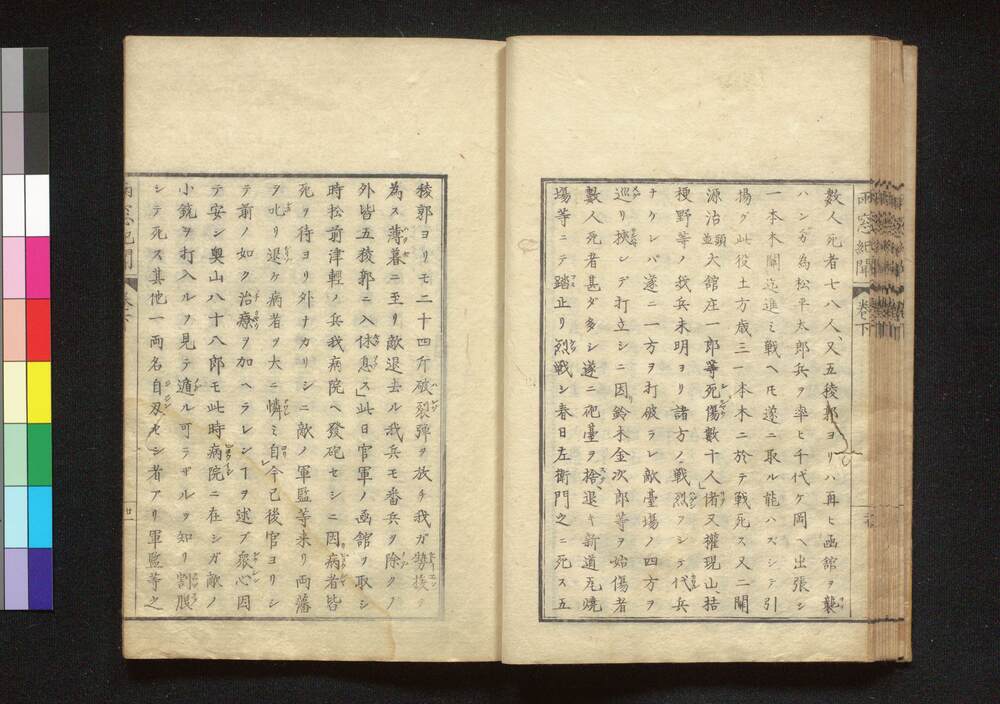 數人死者七八人、又五稜郭ヨリハ再ヒ函館ヲ襲
ハンガ為松平太郎兵ヲ率ヒ千代ケ岡ヘ出張シ
一本木關迄進ミ戰ヘ𪜈遂ニ取ル能ハズシテ引
揚グ此役土方歳三一本木ニ於テ戰死ス又二關
源治頭並大舘庄一郎等死傷數十人偖又權現山、桔
梗野等ノ我兵未明ヨリ諸方ノ戰烈フシテ代兵
ナクレバ遂ニ一方ヲ打破ラレ敵臺塲ノ四方ヲ
巡リ挾ンデ打立シニ因鈴木金次郎等ヲ始傷者
數人死者甚ダ多シ遂ニ砲臺ヲ捨退キ新道瓦燒
塲等ニテ踏止リ烈戰シ春日左衛門之ニ死ス五
雨窓紀聞
巻下
稜郭ヨリモ二十四斤破裂弾ヲ放チ我ガ勢援ヲ
為ス薄暮ニ至リ敵退去ル我兵モ番兵ヲ除クノ
外皆五稜郭ニ入休息ス」此日官軍ノ函館ヲ取シ
時松前津輕ノ兵我病院ヘ發砲セシニ因病者皆
死ヲ待ヨリ外ナカリシニ敵ノ軍監等来リ両藩
ヲ叱リ退ケ病者ヲ大ニ憐ミ自今已後官ヨリシ
テ前ノ如ク治療ヲ加ヘラレンヿヲ述ブ衆心因
テ安シ奧山八十八郎モ此時病院ニ在シガ敵ノ
小銃ヲ打入ルヲ見テ遁ル可ラザルヲ知リ割腹
シテ死ス其他一両名自刃セシ者アリ軍監等之
雨窓紀聞